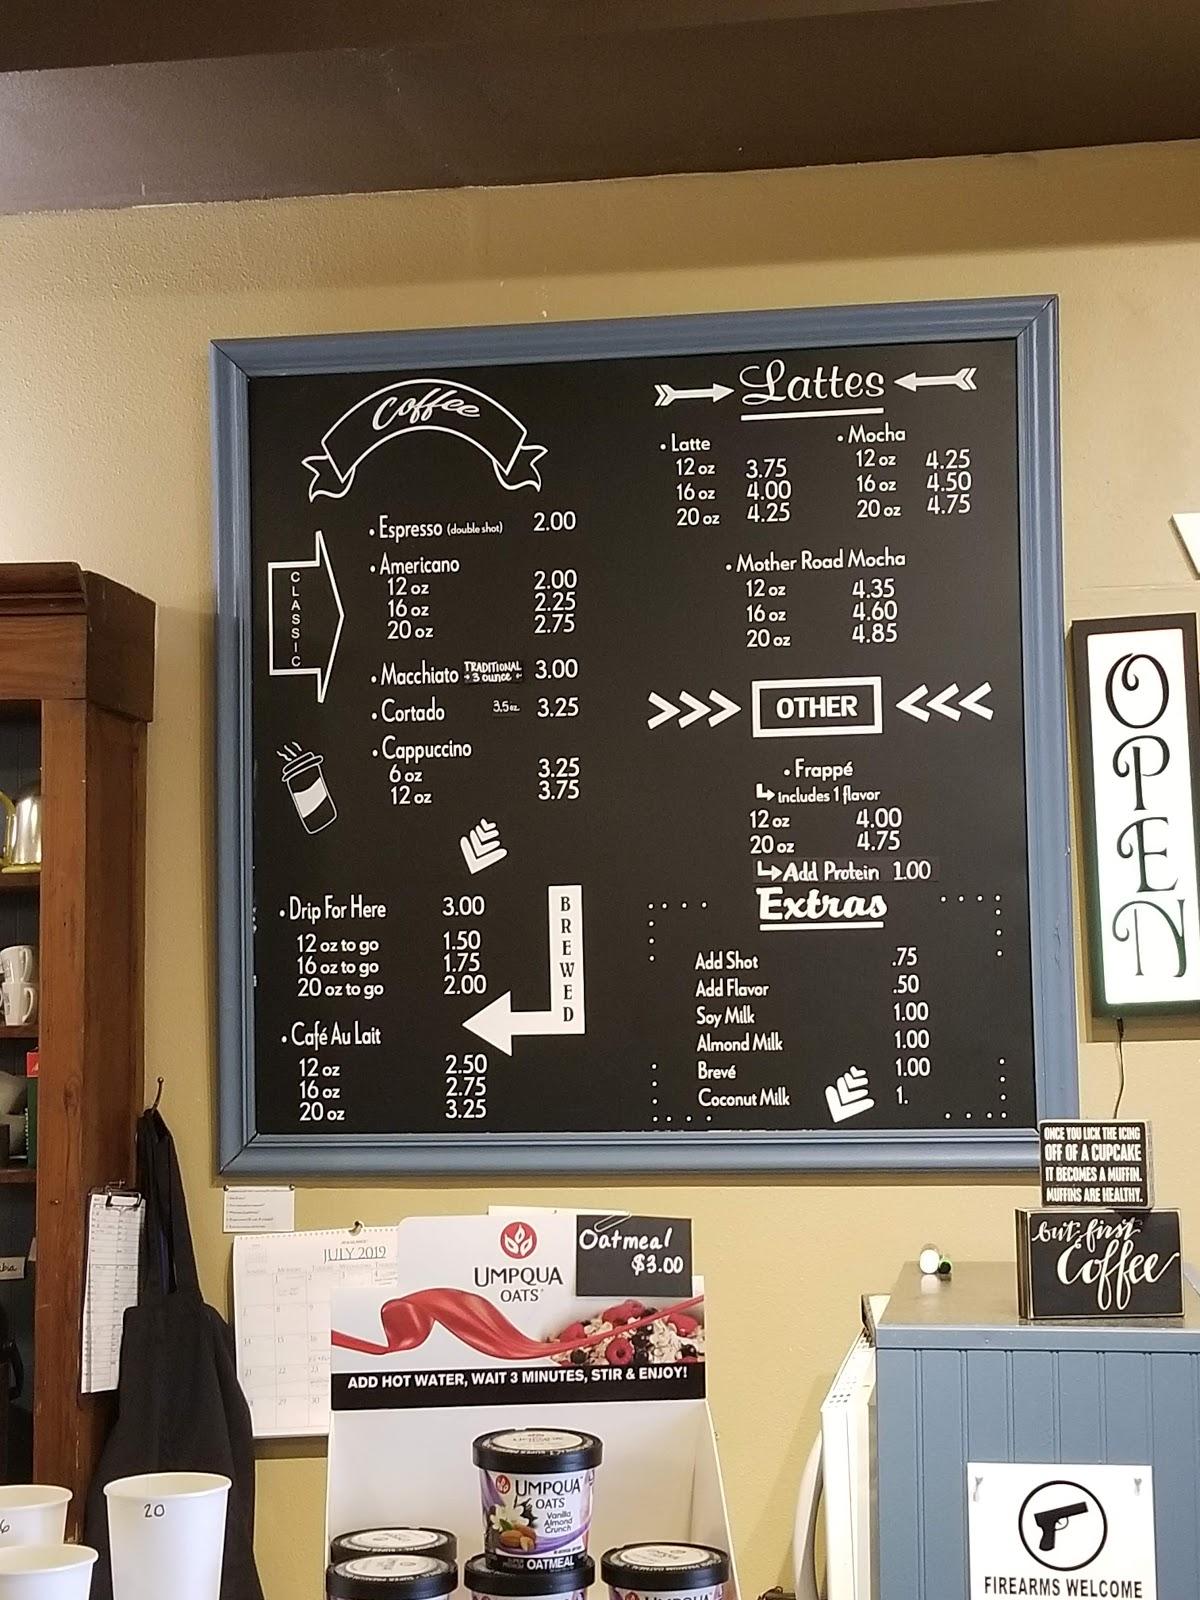 Coffee
CLASSIC
• Espresso (double shot) 2.00
• Americano
12 oz 2.00
16 oz 2.25
20 oz 2.75
• Macchiato TRADITIONAL 3 ounce 3.00
• Cortado 3.5 oz. 3.25
• Cappuccino
6 oz 3.25
12 oz 3.75
BREWED
• Drip For Here 3.00
12 oz to go 1.50
16 oz to go 1.75
20 oz to go 2.00
• Café Au Lait
12 oz 2.50
16 oz 2.75
20 oz 3.25
Lattes
• Latte
12 oz 3.75
16 oz 4.00
20 oz 4.25
• Mocha
12 oz 4.25
16 oz 4.50
20 oz 4.75
• Mother Road Mocha
12 oz 4.35
16 oz 4.60
20 oz 4.85
OTHER
• Frappé
includes 1 flavor
12 oz 4.00
20 oz 4.75
Add Protein 1.00
Extras
Add Shot .75
Add Flavor .50
Soy Milk 1.00
Almond Milk 1.00
Brevé 1.00
Coconut Milk 1.
OPEN
ONCE YOU LICK THE ICING
OFF OF A CUPCAKE
IT BECOMES A MUFFIN.
MUFFINS ARE HEALTHY.
but first
Coffee
JULY 2019
UMPQUA
OATS
Oatmeal
$3.00
ADD HOT WATER, WAIT 3 MINUTES, STIR & ENJOY!
UMPQUA
OATS
Vanilla
Almond
Crunch
OATMEAL
20
FIREARMS WELCOME